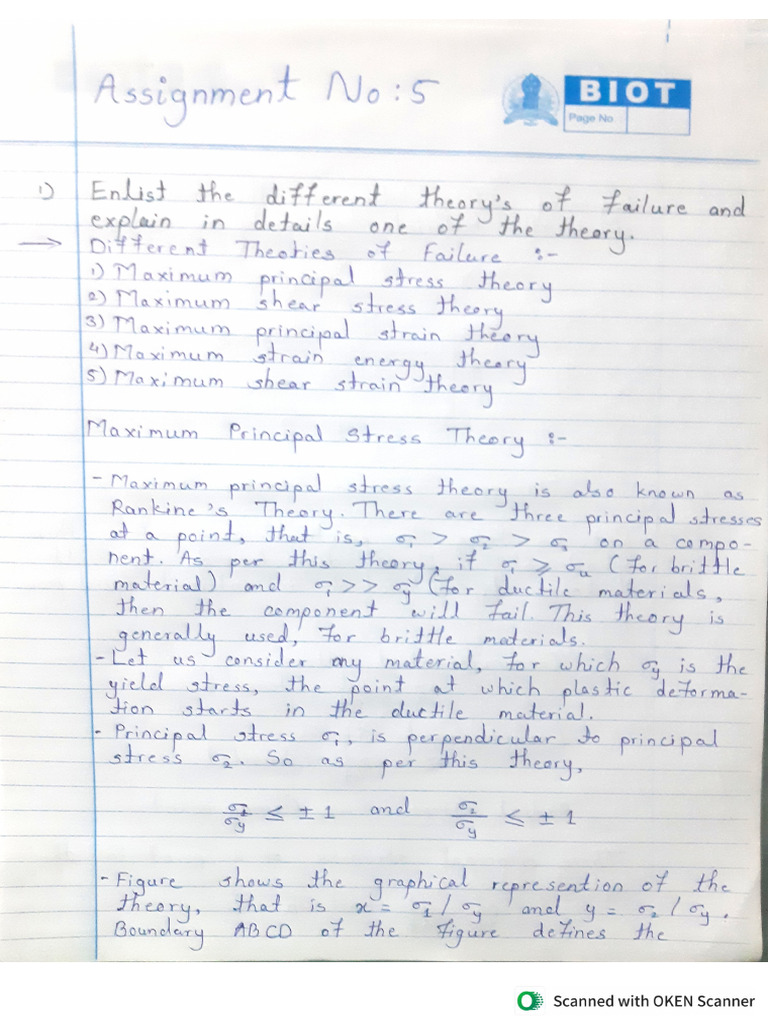 Assignment No:5
BIOT
Page No
1) Enlist the different theory's of failure and
explain in details one of the theory.
→ Different Theoties of Failure :-
1) Maximum principal stress theory
2) Maximum shear stress theory
3) Maximum principal strain theory
4) Maximum strain energy theory
5) Maximum shear strain theory
Maximum Principal Stress Theory :-
- Maximum principal stress theory is also known as
Rankine's Theory. There are three principal stresses
at a point, that is, σ₁ > σ₂ > σ₃ on a compo-
nent. As per this theory, if σ₁ ⩾ σu (for brittle
material) and σ₁ >> σy (for ductile materials,
then the component will fail. This theory is
generally used, for brittle materials.
- Let us consider any material, for which σy is the
yield stress, the point at which plastic deforma-
tion starts in the ductile material.
- Principal stress σ₁, is perpendicular to principal
stress σ₂. So as per this theory,
σ₁/σy ≤ ± 1 and σ₂/σy ≤ ± 1
- Figure shows the graphical represention of the
theory, that is x = σ₁ / σy and y = σ₂ / σy.
Boundary ABCD of the figure defines the
Scanned with OKEN Scanner